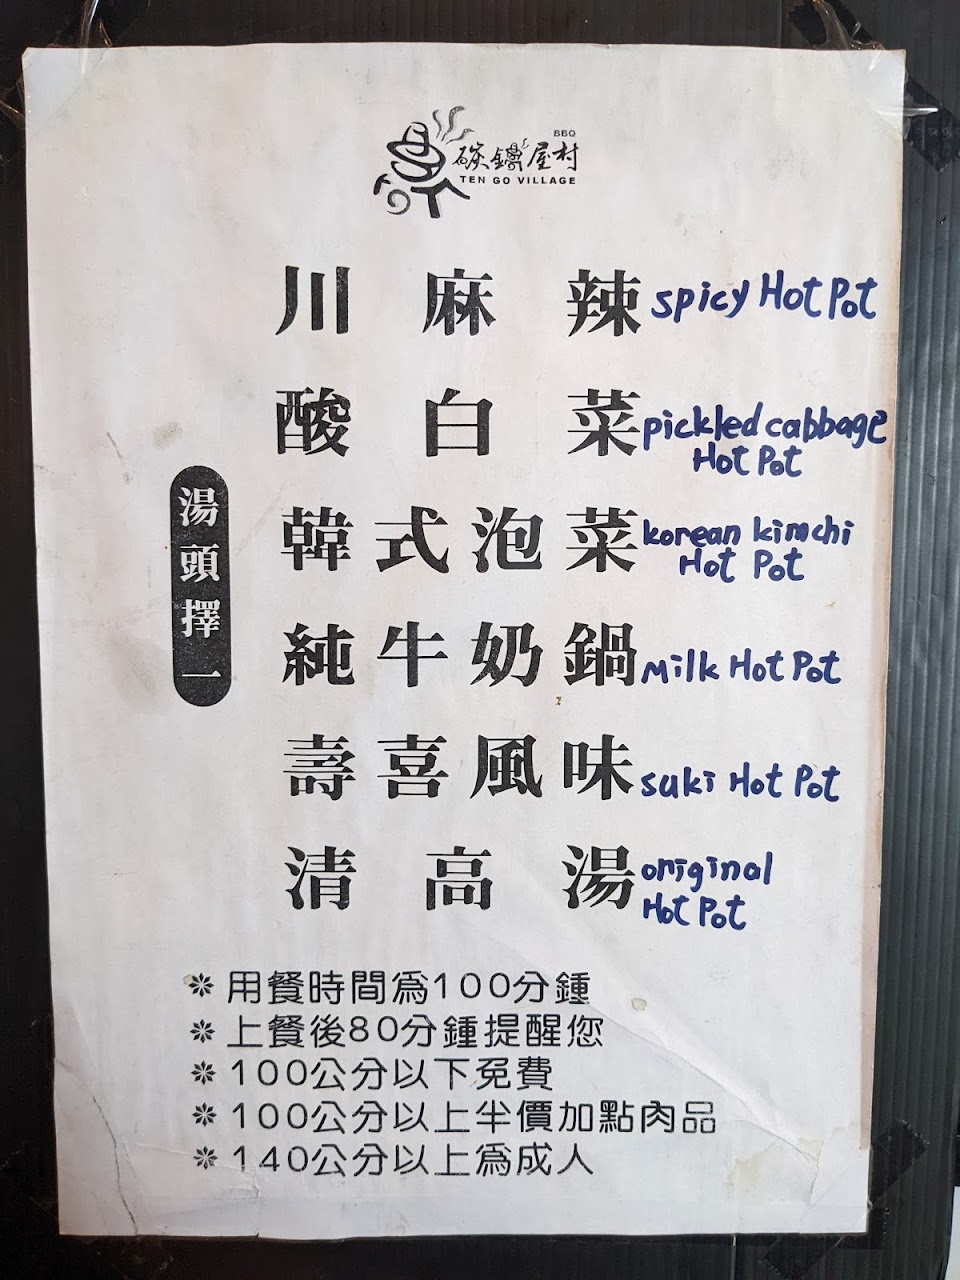 BBQ
碳鑄屋村
TEN GO VILLAGE
湯頭擇一
川麻辣 spicy Hot Pot
酸白菜 pickled cabbage
Hot Pot
韓式泡菜 korean kimchi
Hot Pot
純牛奶鍋 Milk Hot Pot
壽喜風味 suki Hot Pot
清高湯 original
Hot Pot
※用餐時間為100分鍾
※上餐後80分鍾提醒您
※100公分以下免費
※100公分以上半價加點肉品
※140公分以上為成人